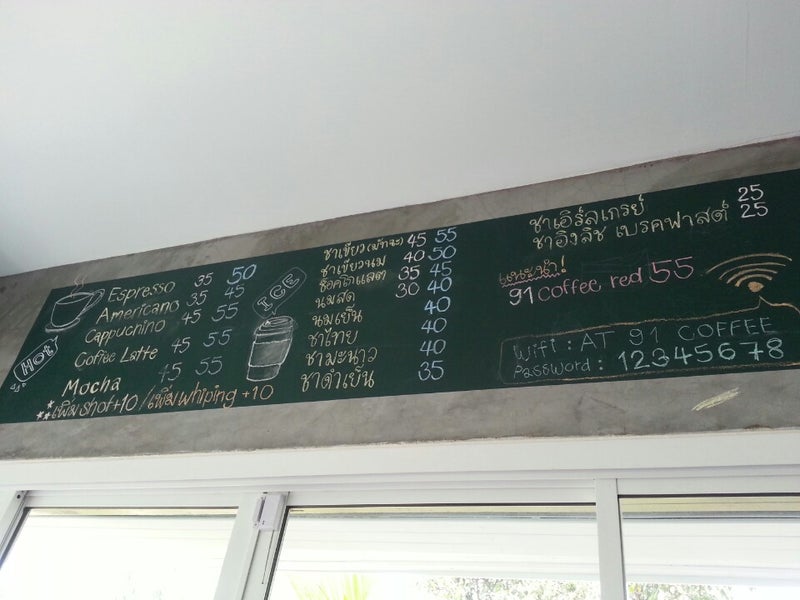 Hot!
Espresso 35 50
Americano 35 45
Cappuchino 45 55
Coffee Latte 45 55
Mocha 45 55
**เพิ่ม shot+10 /เพิ่ม whiping +10
ICE
ชาเขียว(มัทฉะ) 45 55
ชาเขียวนม 40 50
ช็อคโกแลต 35 45
นมสด 30 40
นมเย็น 40
ชาไทย 40
ชามะนาว 40
ชาดำเย็น 35
ชาเอิร์ลเกรย์ 25
ชาอิงลิช เบรคฟาสต์ 25
แนะนำ!
91 coffee red 55
Wifi : AT 91 COFFEE
Password : 12345678